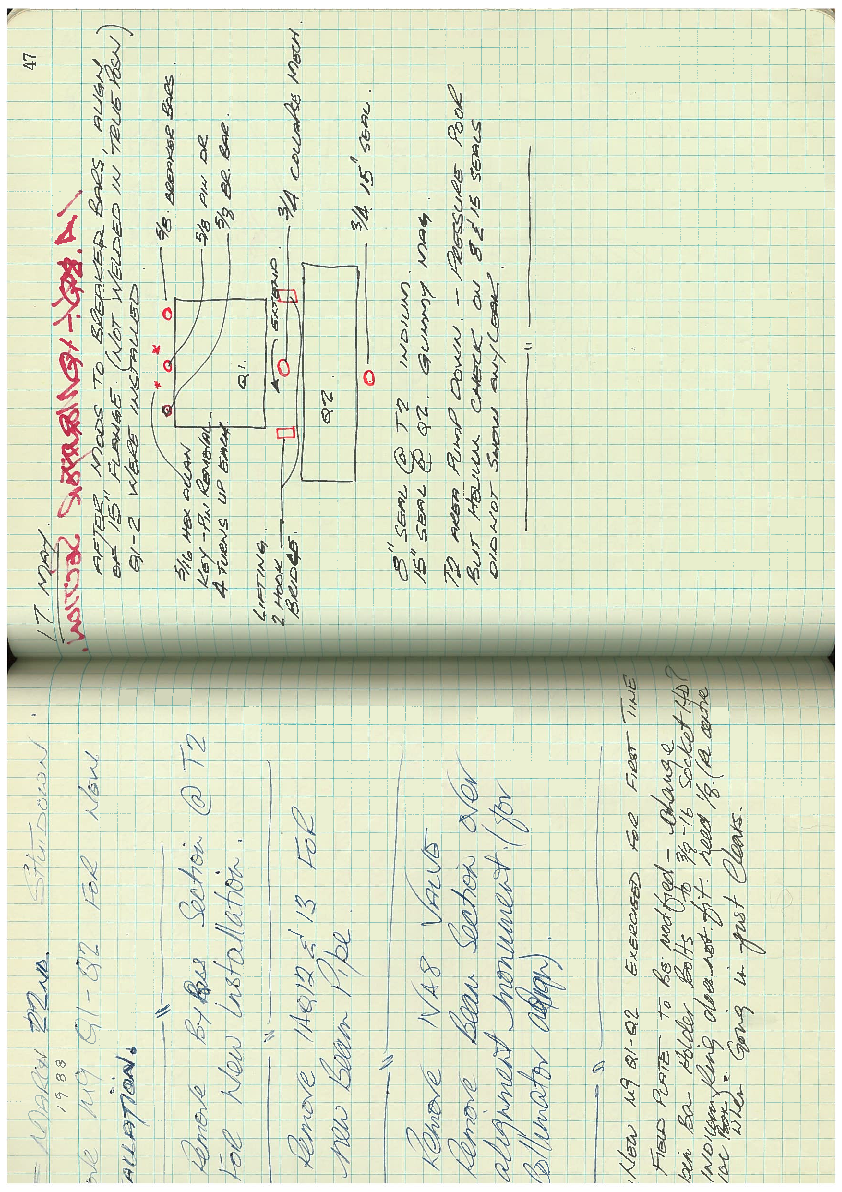 = MARCH 22ND. SHUTDOWN
1988
M9 Q1-Q2 FOR NEW
ALLATION.
Remove Bypass Section @ T2
FOR New Installation.
Remove 1AQ12 & 13 FOR
new Beam Pipe
Remove VA8 VALVE
Remove Beam Section over
alignment monument (for
Collimator align).
NEW M9 Q1-Q2 EXERCISED FOR FIRST TIME
FIELD PLATE TO BE modified - change
Holder Bolts to 3/8-16 Socket HD?
INDIUM Ring does not fit. need 1/8
when Going in just Clears.
47
17 MAY
AFTER MODS TO BREAKER BARS, ALIGN
OF 15" FLANGE (NOT WELDED IN TRUE POSN)
Q1-2 WERE INSTALLED
5/8 BREAKER BARS
5/8 PIN DR
5/8 BR. BAR.
5/16 HEX ALLAN
KEY - PIN REMOVAL
4 TURNS UP EACH
Q1
EXTEND
3/4 COLLAPSE MECH
LIFTING
2 HOOK
BRIDGE
Q2
3/4 15" SEAL.
8" SEAL @ T2 INDIUM.
15" SEAL @ Q2. GUMMY MAG.
T2 AREA PUMP DOWN. - PRESSURE POOR
BUT HELIUM CHECK ON 8 & 15 SEALS
DID NOT SHOW ANY LEAK.